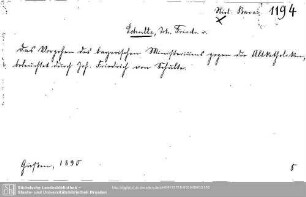 Hist. Bavar. 1194
Schulte, Jh. Friedr. v.
Das Vorgehen des bayerischen Ministeriums gegen die Altkatholiken,
beleuchtet durch Joh. Friedrich von Schulte.
Gießen, 1890
8
Sächsische Landesbibliothek -
Staats- und Universitätsbibliothek Dresden